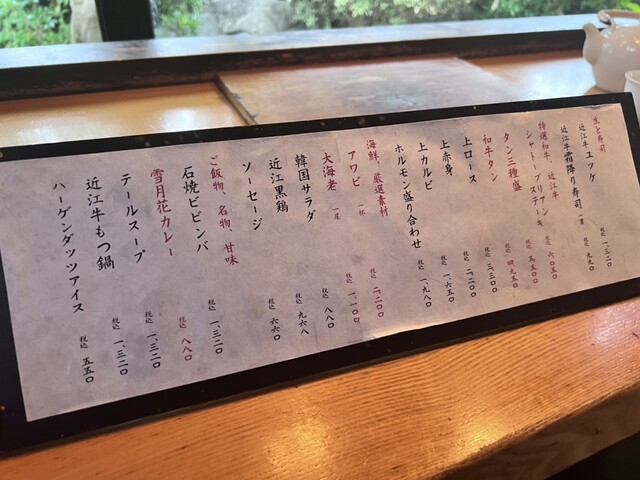 生と寿司
近江牛ユッケ 税込 一、三二〇
近江牛霜降り寿司 一貫 税込 九九〇
特選和牛、近江牛
シャトーブリアンステーキ 税込 六〇五〇
タン三種盛 税込 三、五二〇
和牛タン 税込 四、九五〇
上ロース 税込 三、三〇〇
上赤身 税込 二、二〇〇
上カルビ 税込 一、六五〇
ホルモン盛り合わせ 税込 一、九八〇
海鮮、厳選素材
アワビ 一杯 税込 二、二〇〇
大海老 一尾 税込 一、一〇〇
韓国サラダ 税込 八八〇
近江黒鶏 税込 九六八
ソーセージ 税込 六六〇
ご飯物、名物、甘味
石焼ビビンバ 税込 一、三二〇
雪月花カレー 税込 八八〇
テールスープ 税込 一、三二〇
近江牛もつ鍋 税込 一、三二〇
ハーゲンダッツアイス 税込 五五〇